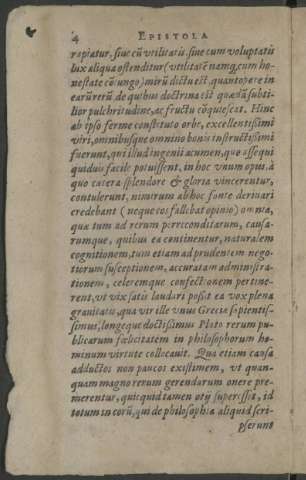 4 EPISTOLA
rapiatur, siue cū vtilitatis, siue cum voluptatis
lux aliqua ostenditur (vtilitatē namq; cum ho-
nestate cōiungo) mirū dictu est, quantopere in
earū rerū de quibus doctrina est quadā subti-
lior pulchritudine, ac fructu cōquiescat. Hinc
ab ipso ferme constituto orbe, excellentissimi
viri, omnibusque omnino bonis instructissimi
fuerunt, qui illud ingenii acumen, que assequi
quiduis facile potuissent, in hoc vnum opus, à
quo cætera splendore & gloria vincerentur,
contulerunt, nimirum ab hoc fonte deriuari
credebant (neque eos fallebat opinio) omnia,
quæ tum ad rerum perreconditarum, causa-
rumque, quibus ea continentur, naturalem
cognitionem, tum etiam ad prudentem nego-
tiorum susceptionem, accuratam administra-
tionem, celeremque confectionem pertine-
rent, vt vix satis laudari possit ea vox plena
grauitatis, qua vir ille vnus Græciæ sapientis-
simus, longeque doctissimus Plato rerum pu-
blicarum fœlicitatem in philosophorum ho-
minum virtute collocauit. Qua etiam causa
adductos non paucos existimem, vt quan-
quam magno rerum gerendarum onere pre-
merentur, quicquid tamen otij superesset, id
totum in eorū, qui de philosophia aliquid scri-
pserunt